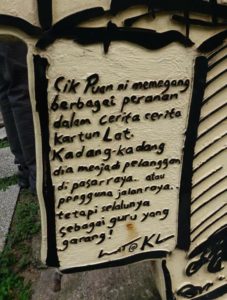 Cik Puan ni memegang
berbagai peranan
dalam cerita cerita
kartun Lat.
Kadang-kadang
dia menjadi pelanggan
di pasaraya.. atau
pengguna jalanraya..
tetapi selalunya
sebagai guru yang
garang!
LAT@KL